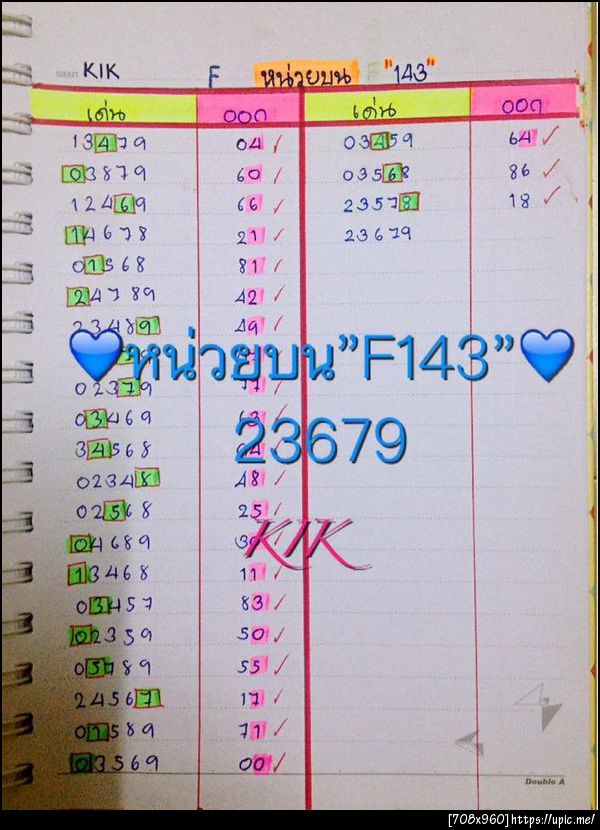 KIK F หน่วยบน "143"
เด่น ออก เด่น ออก
13479 04 ✓ 03459 64 ✓
03879 60 ✓ 03568 86 ✓
12469 66 ✓ 23578 18 ✓
14678 21 ✓ 23679
01568 81 ✓
24789 42 ✓
23489 49 ✓
💙หน่วยบน"F143"💙
02379 77
03469 63
23679
34568
02348 48 ✓
02568 25 ✓
04689
KIK
13468 11 ✓
03457 83 ✓
02359 50 ✓
05789 55 ✓
24567 17 ✓
01589 71 ✓
03569 00 ✓
Double A
[708x960]https://upic.me/